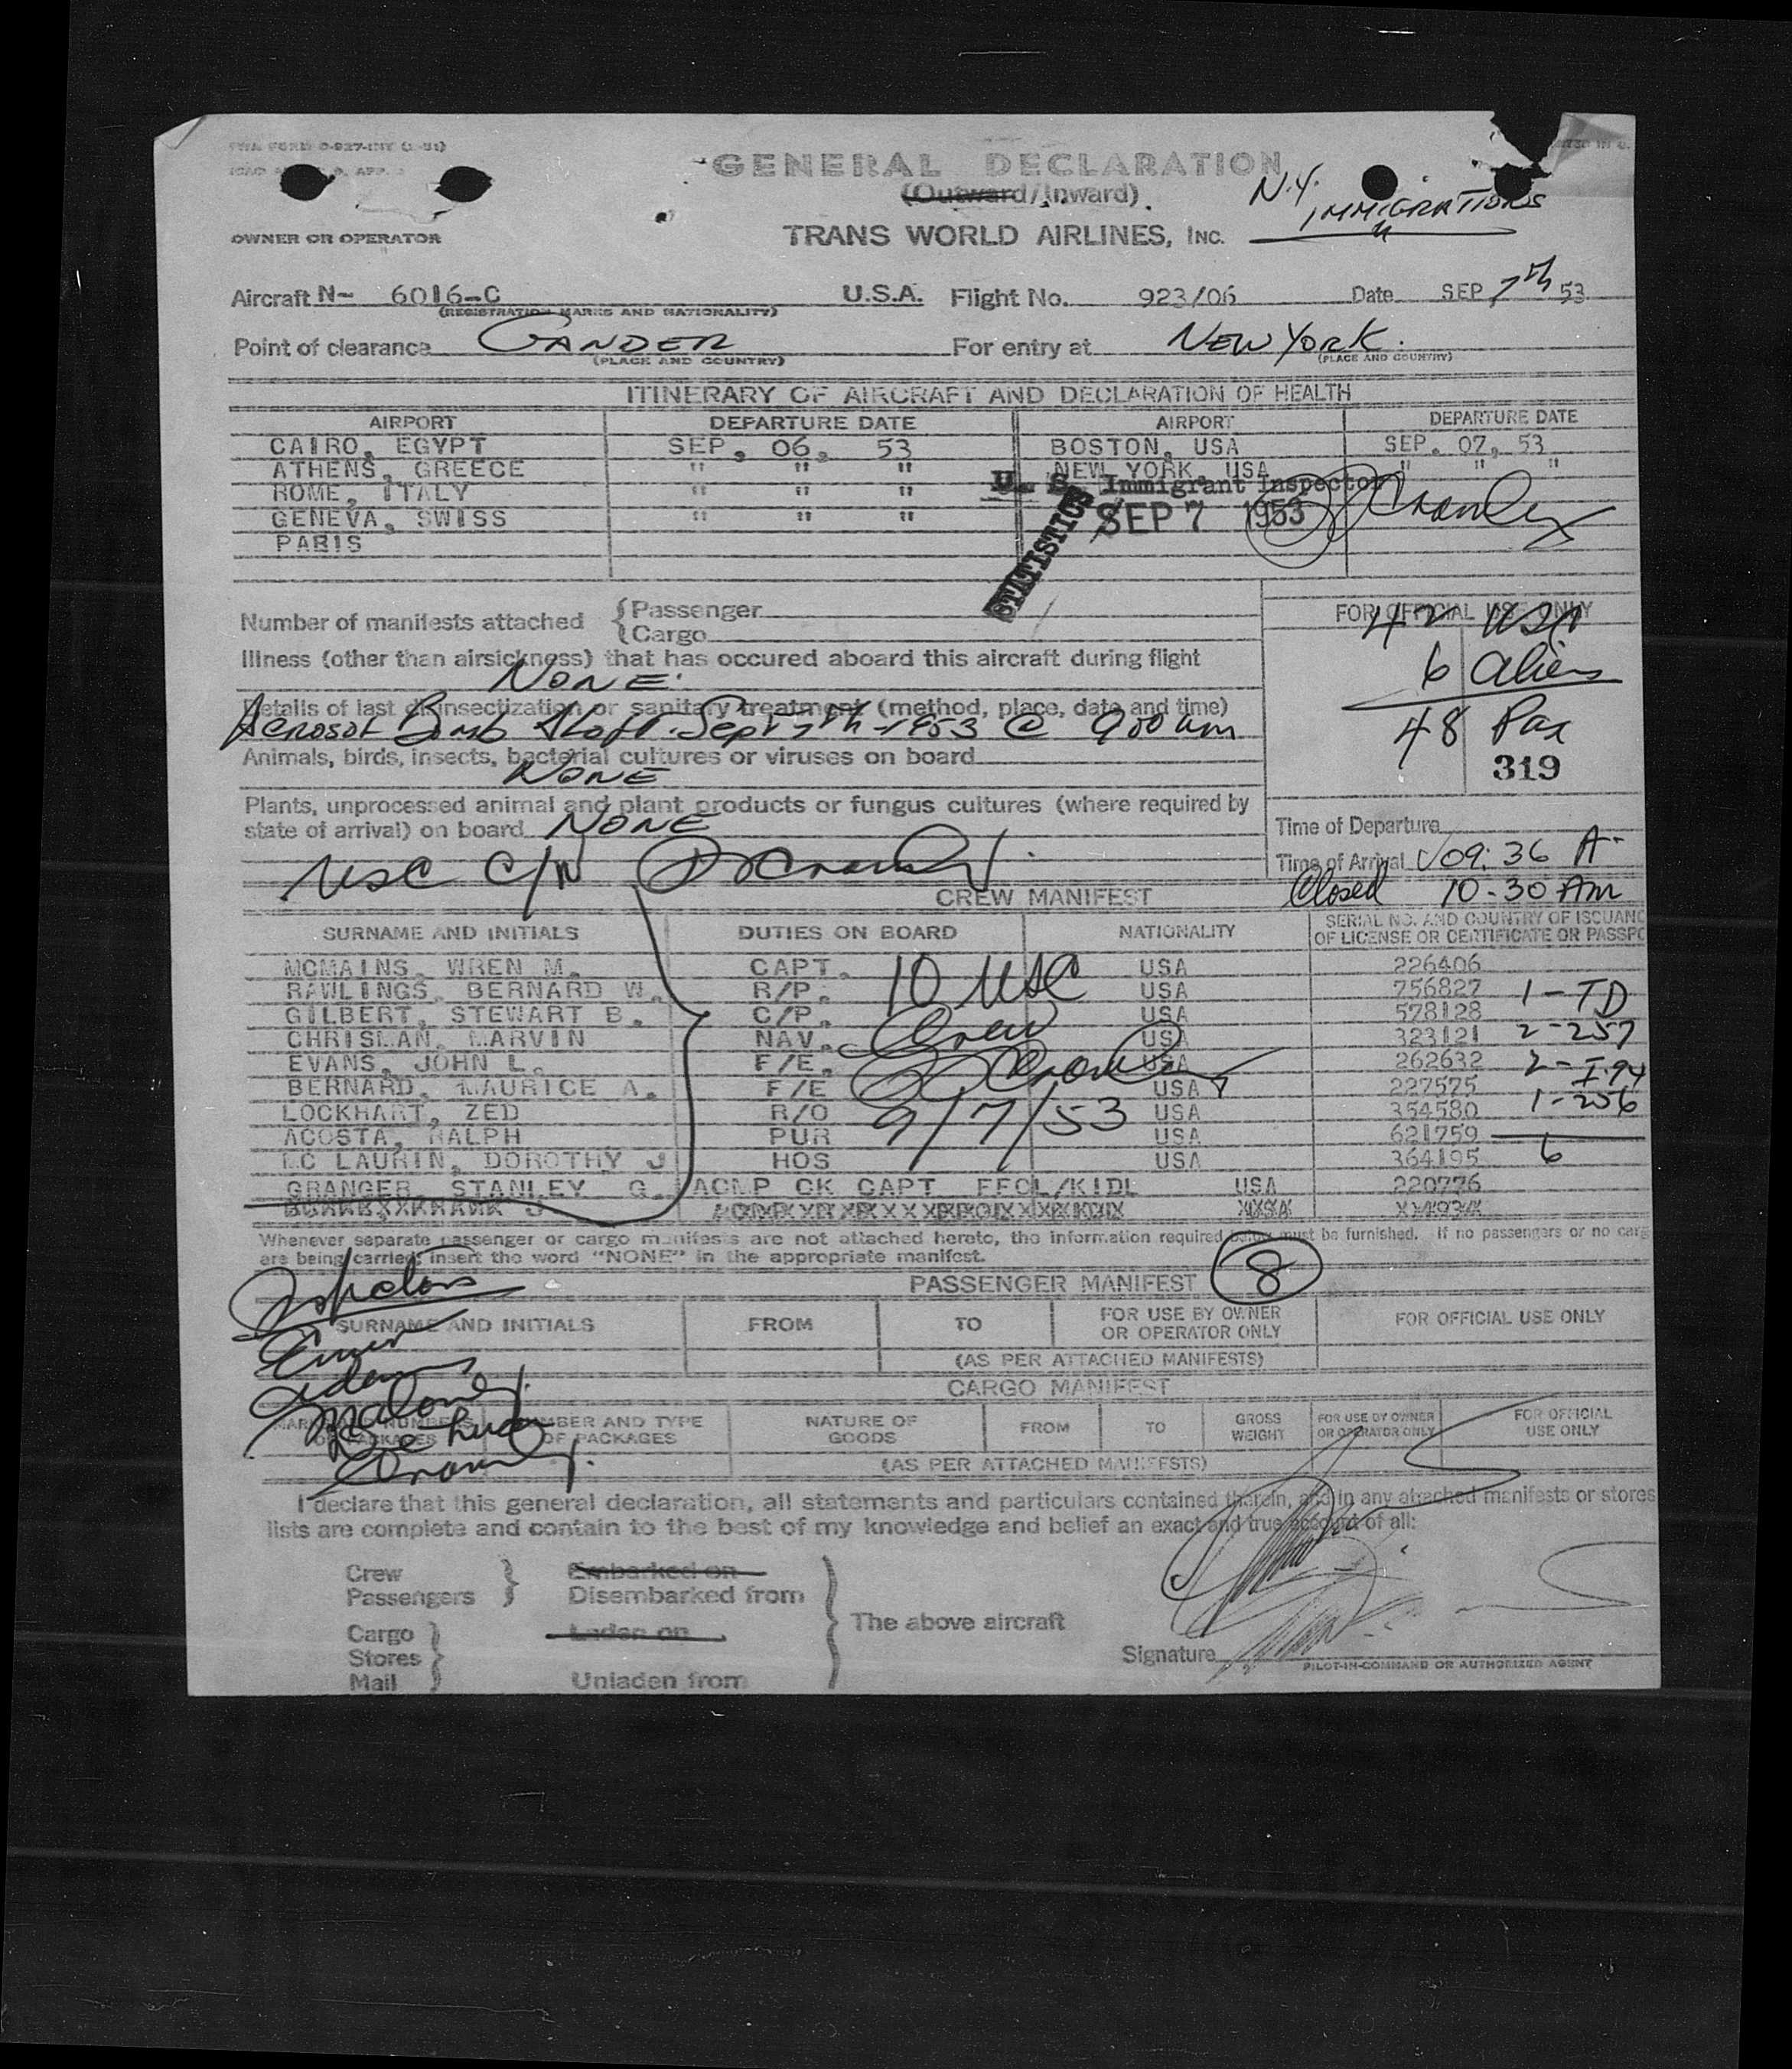 TWA FORM O-927-INT
GENERAL DECLARATION
(Outward/Inward)
N.Y. IMMIGRATIONS
OWNER OR OPERATOR
TRANS WORLD AIRLINES, INC.
Aircraft N- 6016-C U.S.A. Flight No. 923/06 Date SEP 7th 53
(REGISTRATION MARKS AND NATIONALITY)
Point of clearance GANDER For entry at NEW YORK.
(PLACE AND COUNTRY) (PLACE AND COUNTRY)
ITINERARY OF AIRCRAFT AND DECLARATION OF HEALTH
AIRPORT DEPARTURE DATE AIRPORT DEPARTURE DATE
CAIRO, EGYPT SEP, 06, 53 BOSTON, USA SEP. 07, 53
ATHENS, GREECE " " " NEW YORK, USA " " "
ROME, ITALY " " " U. S. Immigrant Inspector
GENEVA, SWISS " " " SEP 7 1953
PARIS
STATISTICS
Number of manifests attached { Passenger
{ Cargo
FOR OFFICIAL USE ONLY
42 USA
Illness (other than airsickness) that has occured aboard this aircraft during flight
6 aliens
NONE.
Details of last disinsectization or sanitary treatment (method, place, date and time)
48 Pax
Aerosol Bomb Aloft. Sept 7th-1953 @ 900 am
Animals, birds, insects, bacterial cultures or viruses on board
NONE
319
Plants, unprocessed animal and plant products or fungus cultures (where required by
state of arrival) on board NONE
Time of Departure
Time of Arrival 09:36 A.
USC C/N
Closed 10-30 AM
CREW MANIFEST
SURNAME AND INITIALS DUTIES ON BOARD NATIONALITY SERIAL NO. AND COUNTRY OF ISSUANC
OF LICENSE OR CERTIFICATE OR PASSPO
MCMAINS, WREN M. CAPT. USA 226406
RAWLINGS, BERNARD W. R/P. USA 756827 1-TD
GILBERT, STEWART B. C/P. USA 578128
CHRISMAN, MARVIN NAV. USA 323121 2-257
EVANS, JOHN L. F/E. USA 262632 2-I-94
BERNARD, MAURICE A. F/E USA 227575 1-256
LOCKHART, ZED R/O USA 354580
ACOSTA, RALPH PUR USA 621759
MC LAURIN, DOROTHY J HOS USA 364195 6
GRANGER, STANLEY G. ACMP CK CAPT FFCL/KIDL USA 220776
10 USC
Crew
9/7/53
Whenever separate passenger or cargo manifests are not attached hereto, the information required below must be furnished. If no passengers or no carg
are being carried, insert the word "NONE" in the appropriate manifest.
PASSENGER MANIFEST 8
SURNAME AND INITIALS FROM TO FOR USE BY OWNER OR OPERATOR ONLY FOR OFFICIAL USE ONLY
(AS PER ATTACHED MANIFESTS)
CARGO MANIFEST
MARKS AND NUMBERS OF PACKAGES NUMBER AND TYPE OF PACKAGES NATURE OF GOODS FROM TO GROSS WEIGHT FOR USE BY OWNER OR OPERATOR ONLY FOR OFFICIAL USE ONLY
(AS PER ATTACHED MANIFESTS)
I declare that this general declaration, all statements and particulars contained therein, and in any attached manifests or stores
lists are complete and contain to the best of my knowledge and belief an exact and true account of all:
Crew Embarked on
Passengers Disembarked from
The above aircraft
Cargo Laden on
Stores
Mail Unladen from
Signature
PILOT-IN-COMMAND OR AUTHORIZED AGENT